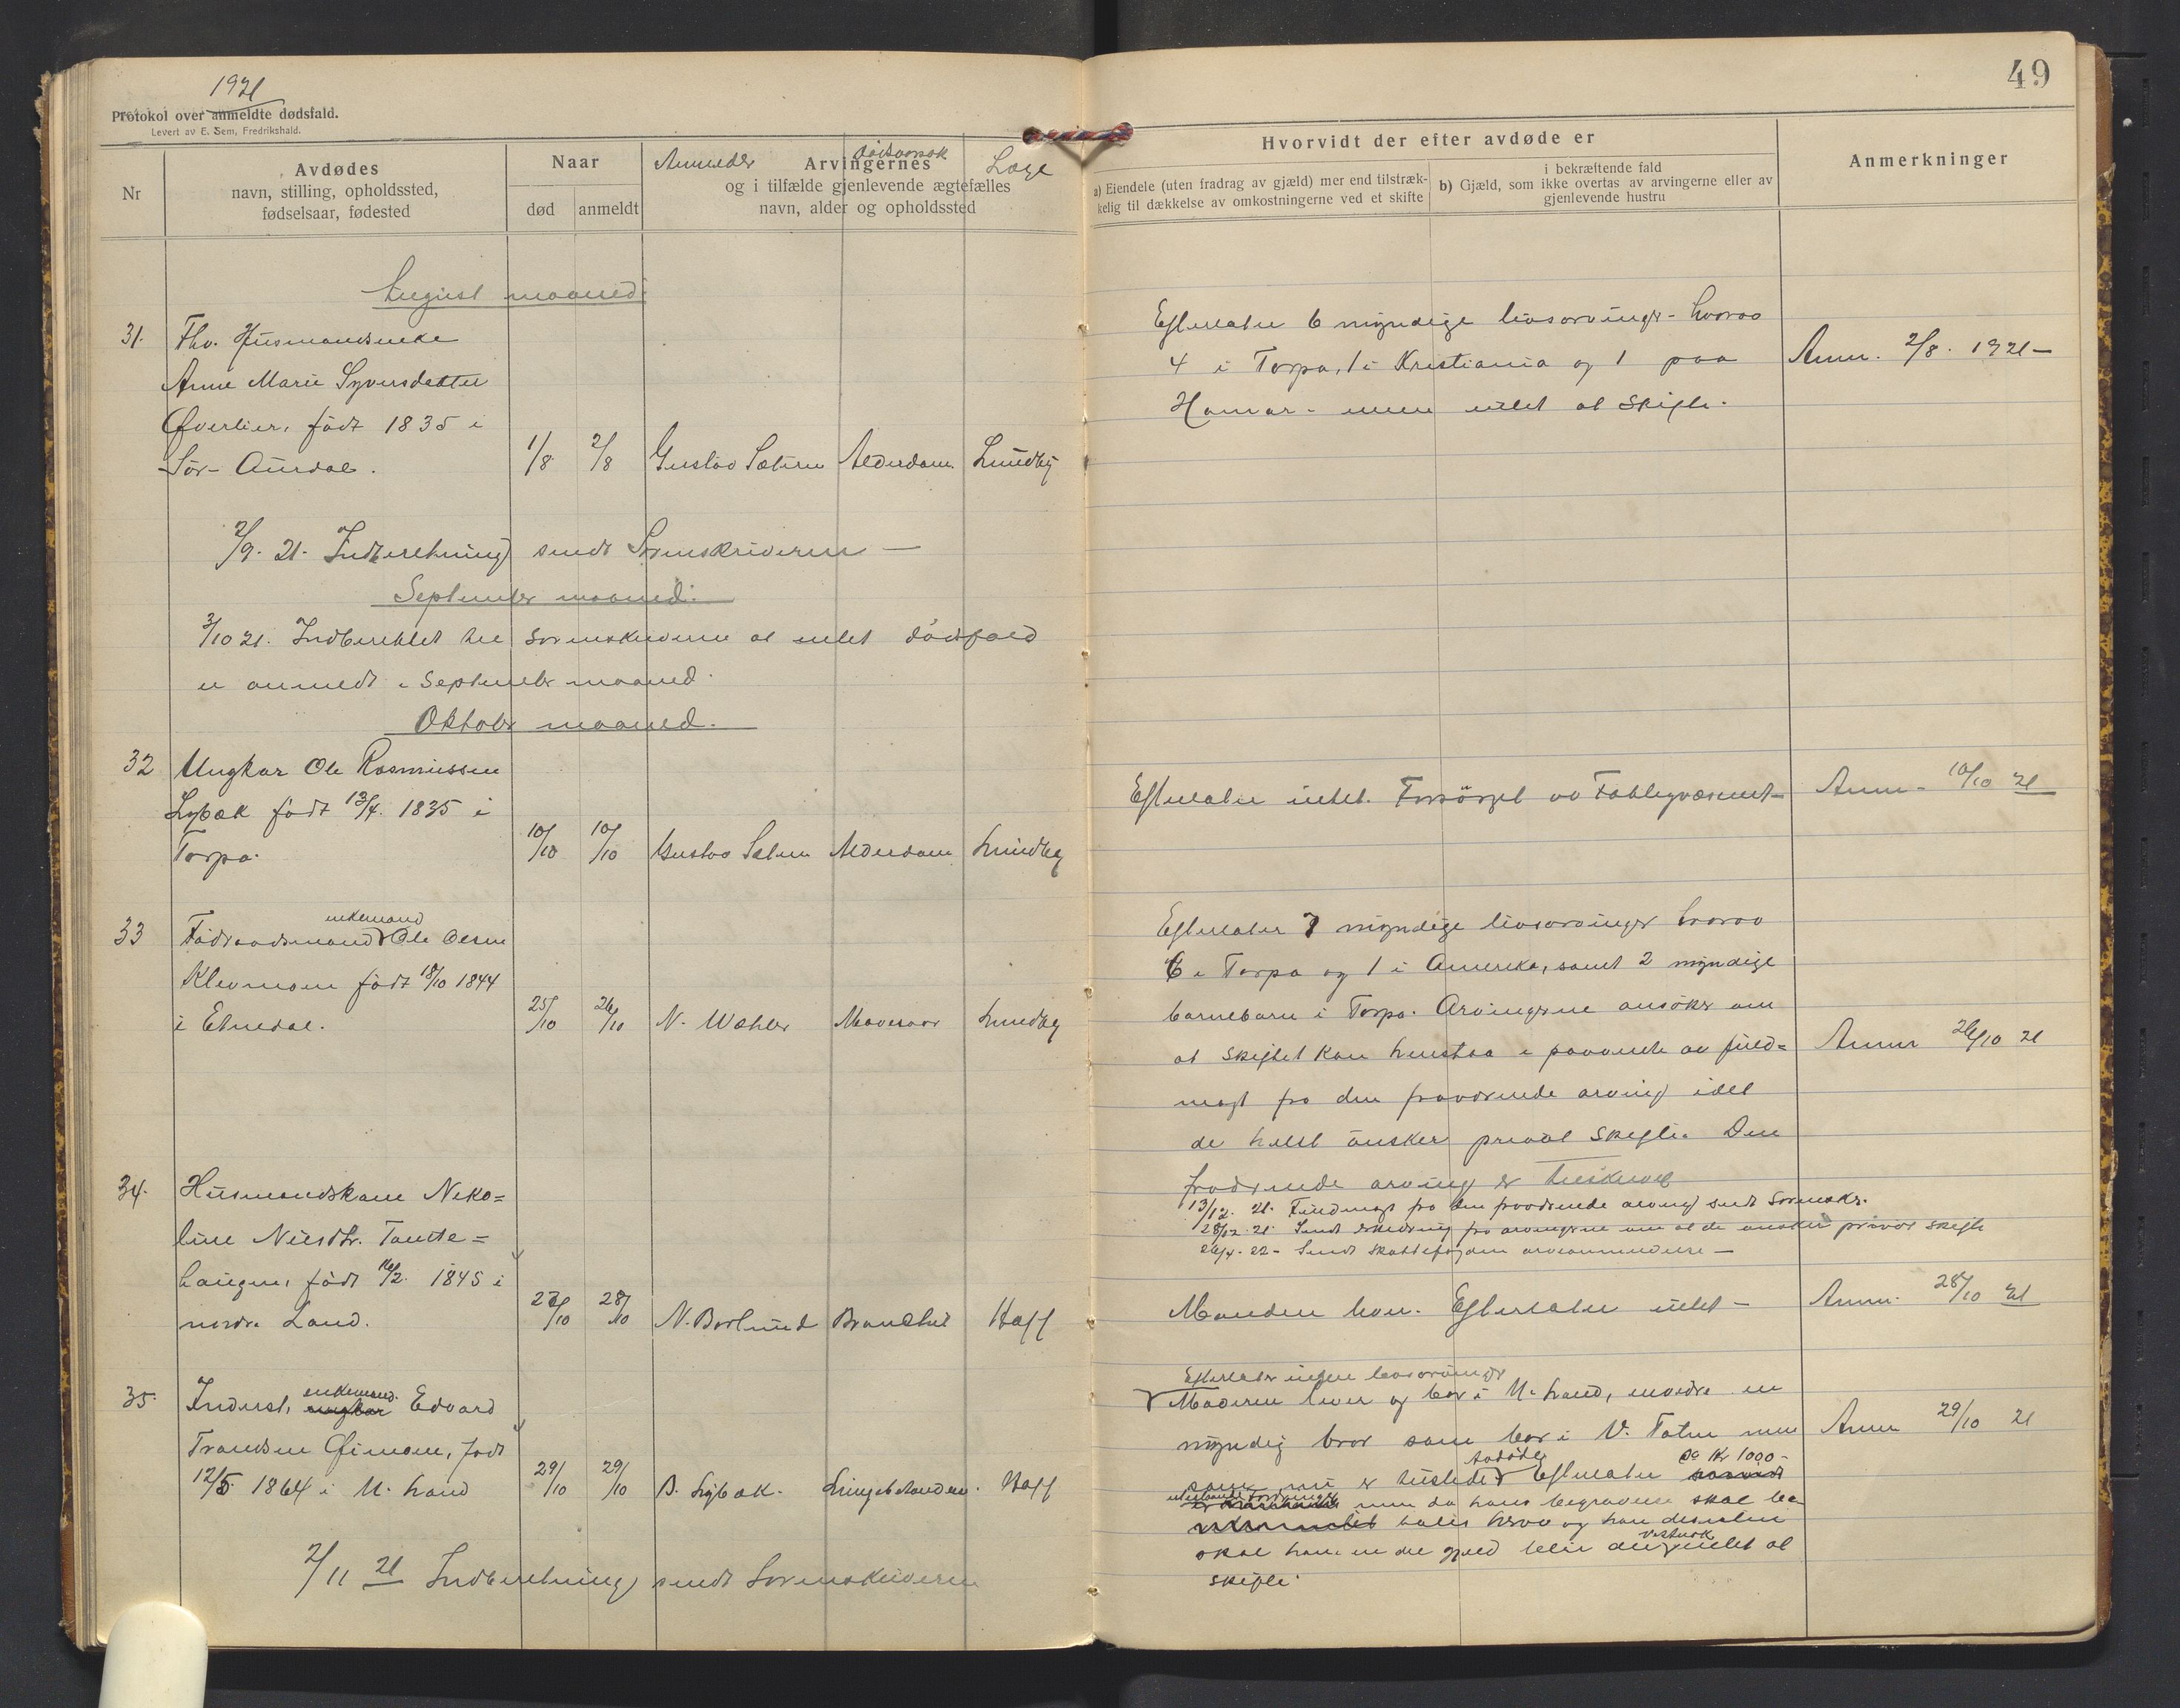 1921
49
Protokol over anmeldte dødsfald.
Levert av E. Sem, Fredrikshald.
Nr
Avdødes
navn, stilling, opholdssted,
fødselsaar, fødested
Naar
død
anmeldt
Anmelder
Dødsaarsak
Læge
Arvingernes
og i tilfælde gjenlevende ægtefælles
navn, alder og opholdssted
Hvorvidt der efter avdøde er
a) Eiendele (uten fradrag av gjæld) mer end tilstræk-
kelig til dækkelse av omkostningerne ved et skifte
i bekræftende fald
b) Gjæld, som ikke overtas av arvingerne eller av
gjenlevende hustru
Anmerkninger
August maaned.
31. Fhv. Husmandsenke
Anne Marie Syversdatter
Øverlier, født 1835 i
Sør-Aurdal.
1/8 2/8 Gustav Sæteren Alderdom Lundby
Efterlater 6 myndige livsarvinger - hvorav
4 i Torpa, 1 i Kristiania og 1 paa
Hamar - men intet at skifte.
Anm. 2/8. 1921 -
2/9. 21. Indberetning sendt Sorenskriveren -
September maaned.
3/10 21. Indberettet til sorenskriveren at intet dødsfald
er anmeldt i September maaned.
Oktober maaned.
32 Ungkar Ole Rasmussen
Lybæk født 13/4. 1835 i
Torpa.
10/10 10/10 Gustav Sæteren Alderdom Lundby
Efterlater intet. Forsørget av Fattigvæsenet -
Anm. 10/10 21
33 Føderaadsmand enkemand Ole Olsen
Klevmoen født 18/10 1844
i Etnedal.
25/10 26/10 N. Wæhler Mavesaar Lundby
Efterlater 7 myndige livsarvinger hvorav
6 i Torpa og 1 i Amerika, samt 2 myndige
barnebarn i Torpa. Arvingerne ansøker om
at skiftet kan henstaa i paavente av fuld=
magt fra den fraværende arving idet
de helst ønsker privat skifte. Den
fraværende arving er
13/12. 21. Fuldmagt fra den fraværende arving sendt Sorenskr.
28/12. 21. Sendt erklæring fra arvingerne om at de ønsker privat skifte
26/4. 22 - Sendt skattefogden arveanmeldelse -
Anm 26/10 21
34. Husmandskone Niko=
line Nilsdtr. Tomte=
haugen, født 16/2. 1845 i
nordre Land.
27/10 28/10 N. Borlund Bronchit Hoff
Manden lever. Efterlater intet -
Anm. 28/10 21
35. Inderst, enkemand. ungkar Edvard
Trondsen Øimoen, født
12/5. 1864 i N. Land
29/10 29/10 B. Lybæk. Hoff
Efterlater ingen livsarvinger
Moderen lever og bor i N. Land, en
myndig bror som bor i V. Toten men
som nu er tilstede. Avdøde Efterlater ca Kr 1000 -
utestaaende fordringer men da hans begravelse skal be-
tales herav og han desuten
skal ha en del gjæld blir der vistnok intet at
skifte.
Anm 29/10 21
2/11 21 Indberetning sendt Sorenskriveren